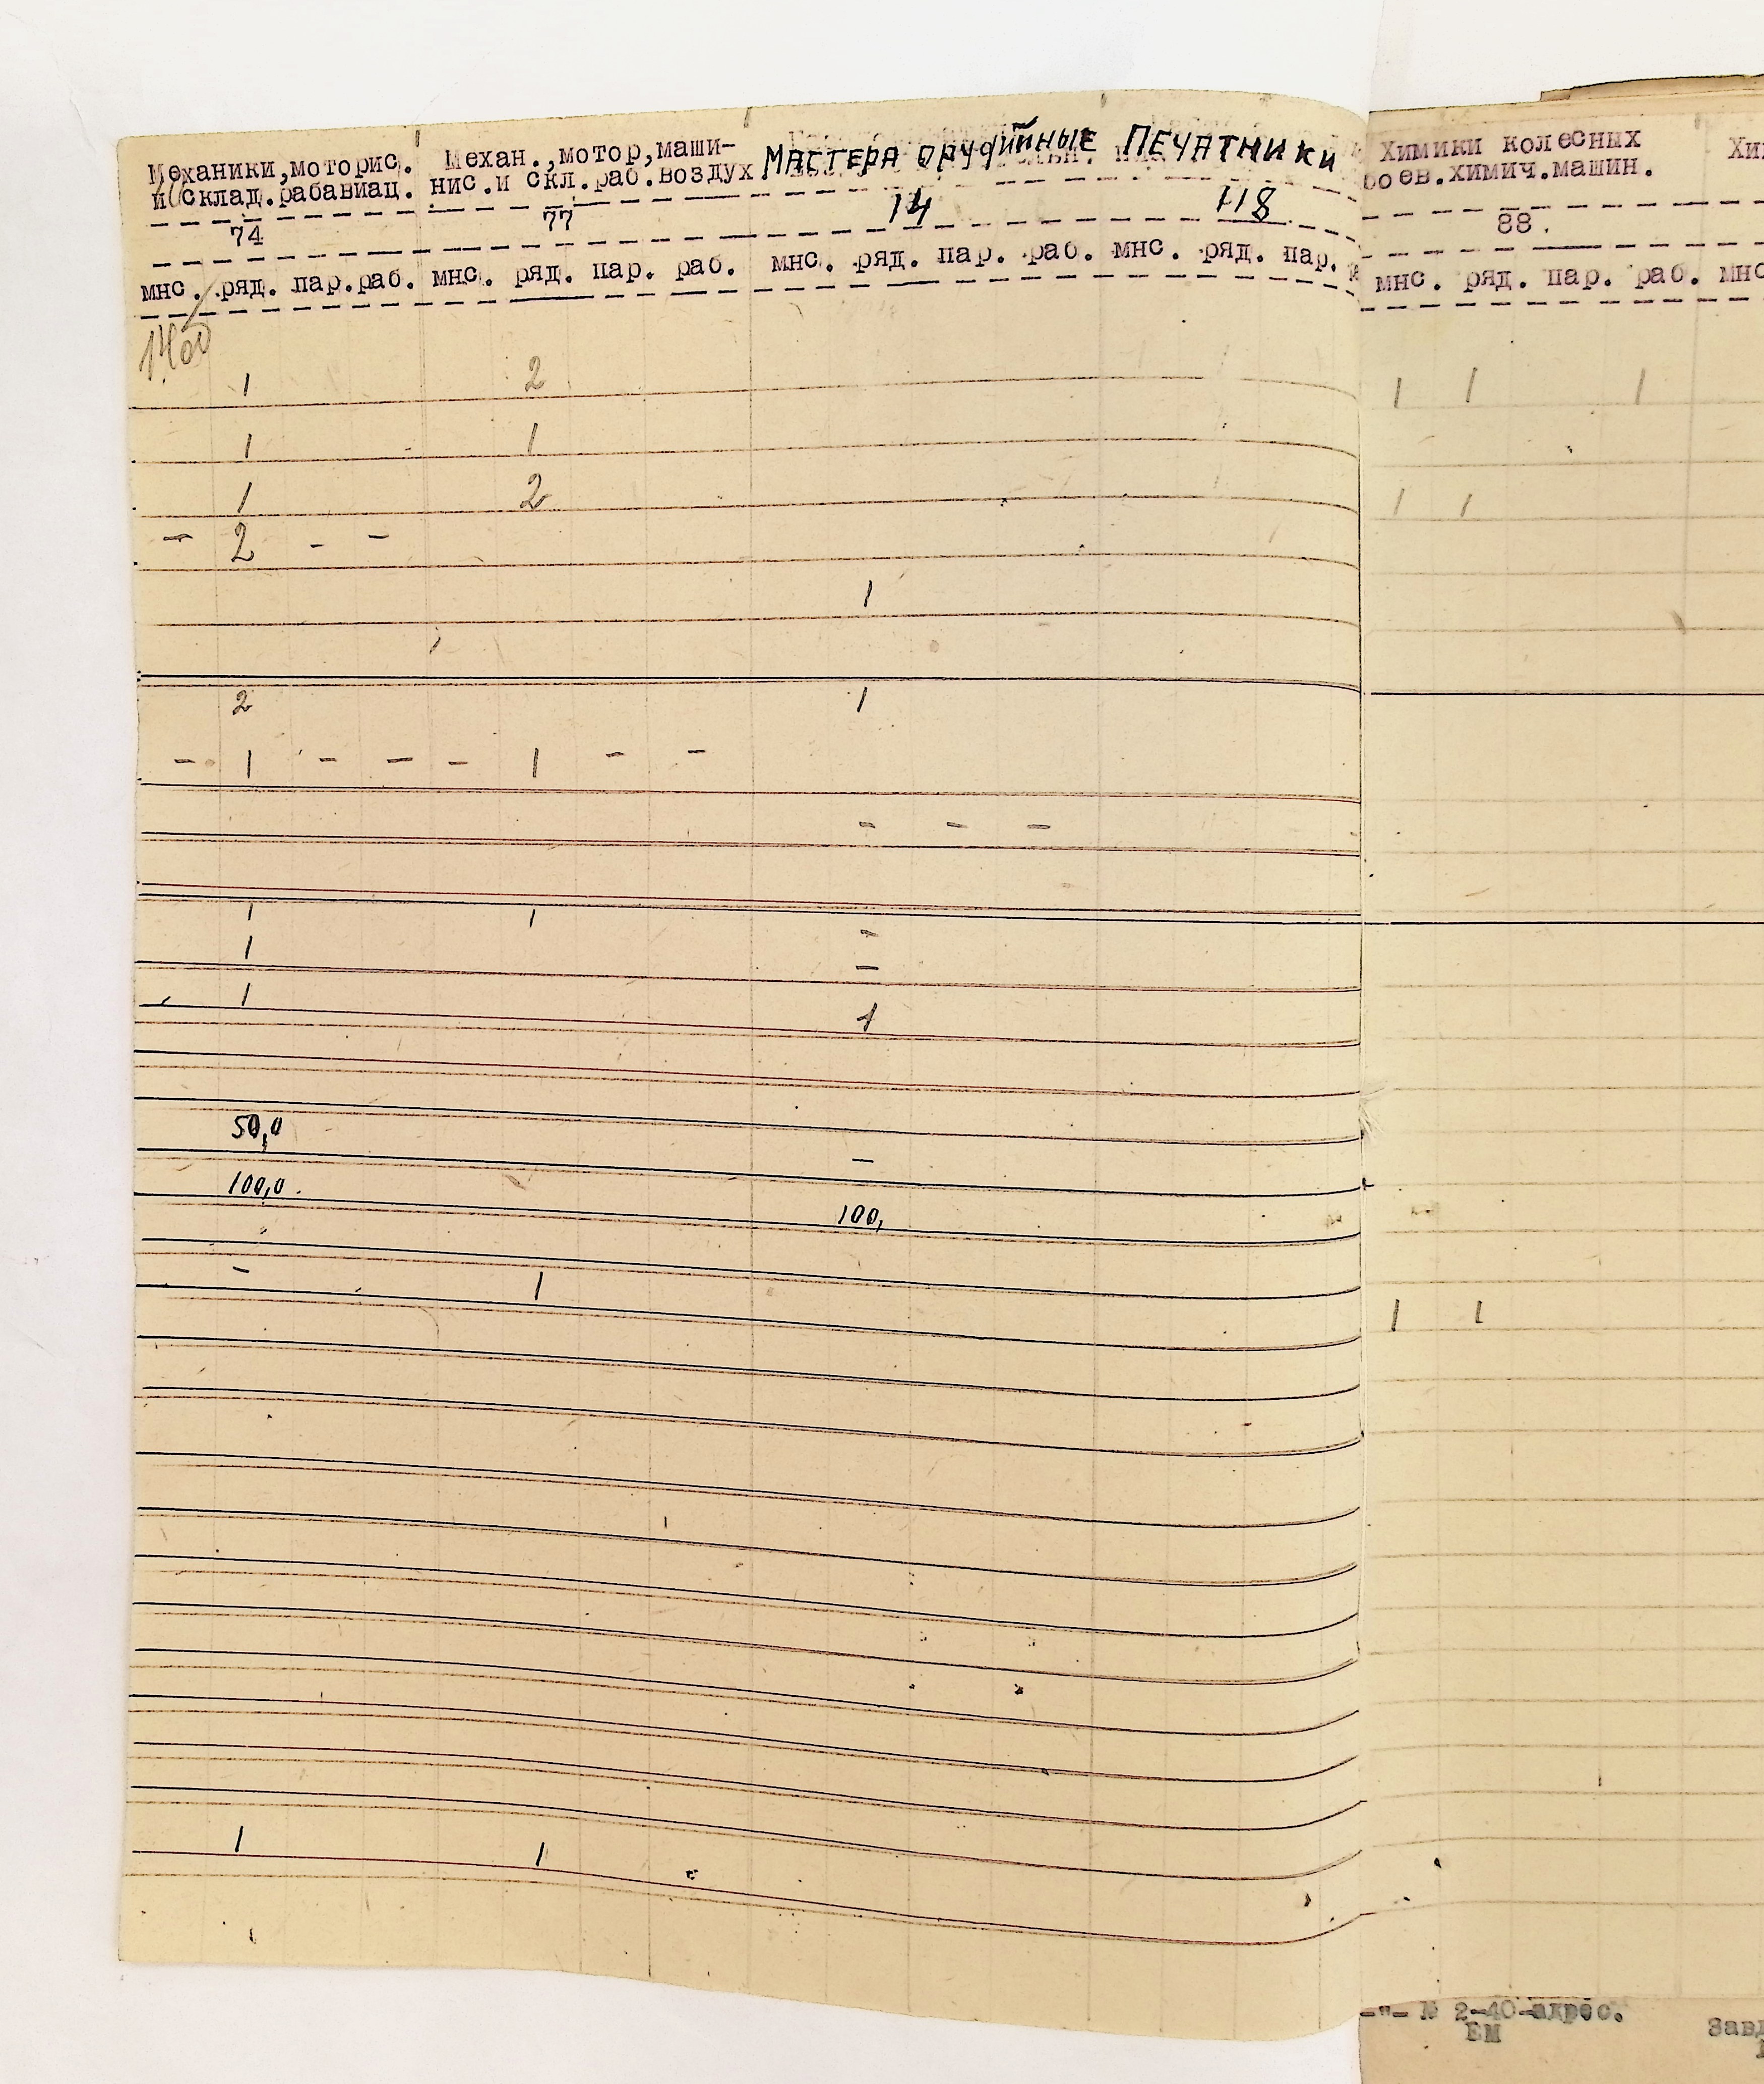 Механики,моторис. Механ.,мотор,маши- Мастера орудийные Печатники Химики колесных
и склад.рабавиац. нис.и скл.раб.воздух боев.химич.машин.
74 77 14 118 88.
мнс. ряд. пар.раб. мнс. ряд. пар. раб. мнс. ряд. пар. раб. мнс. ряд. пар. мнс. ряд. пар. раб. мнс
1400
1 2 1 1 1
1 1
1 2 1 1
- 2 - -
1
2 1
- 1 - - - 1 - -
- - -
1 1 -
1 -
1 1
50,0 -
100,0. 100,
- 1 1 1
1 1
-"- № 2-40-адрес.
ЕМ